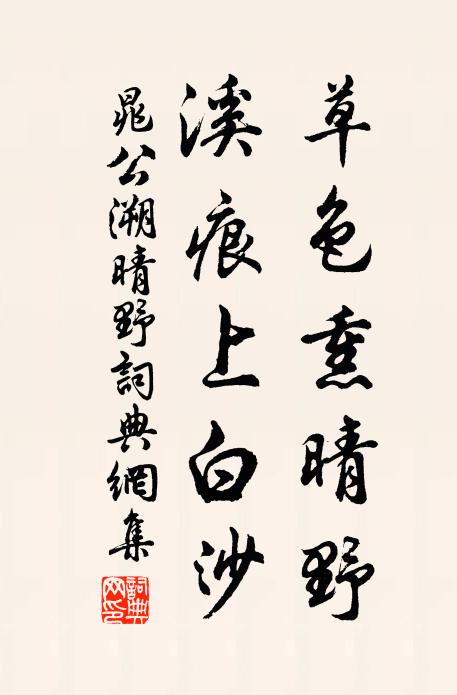 草色熏晴野
溪痕上白沙
晁公溯晴野詞典網集
詞典網印